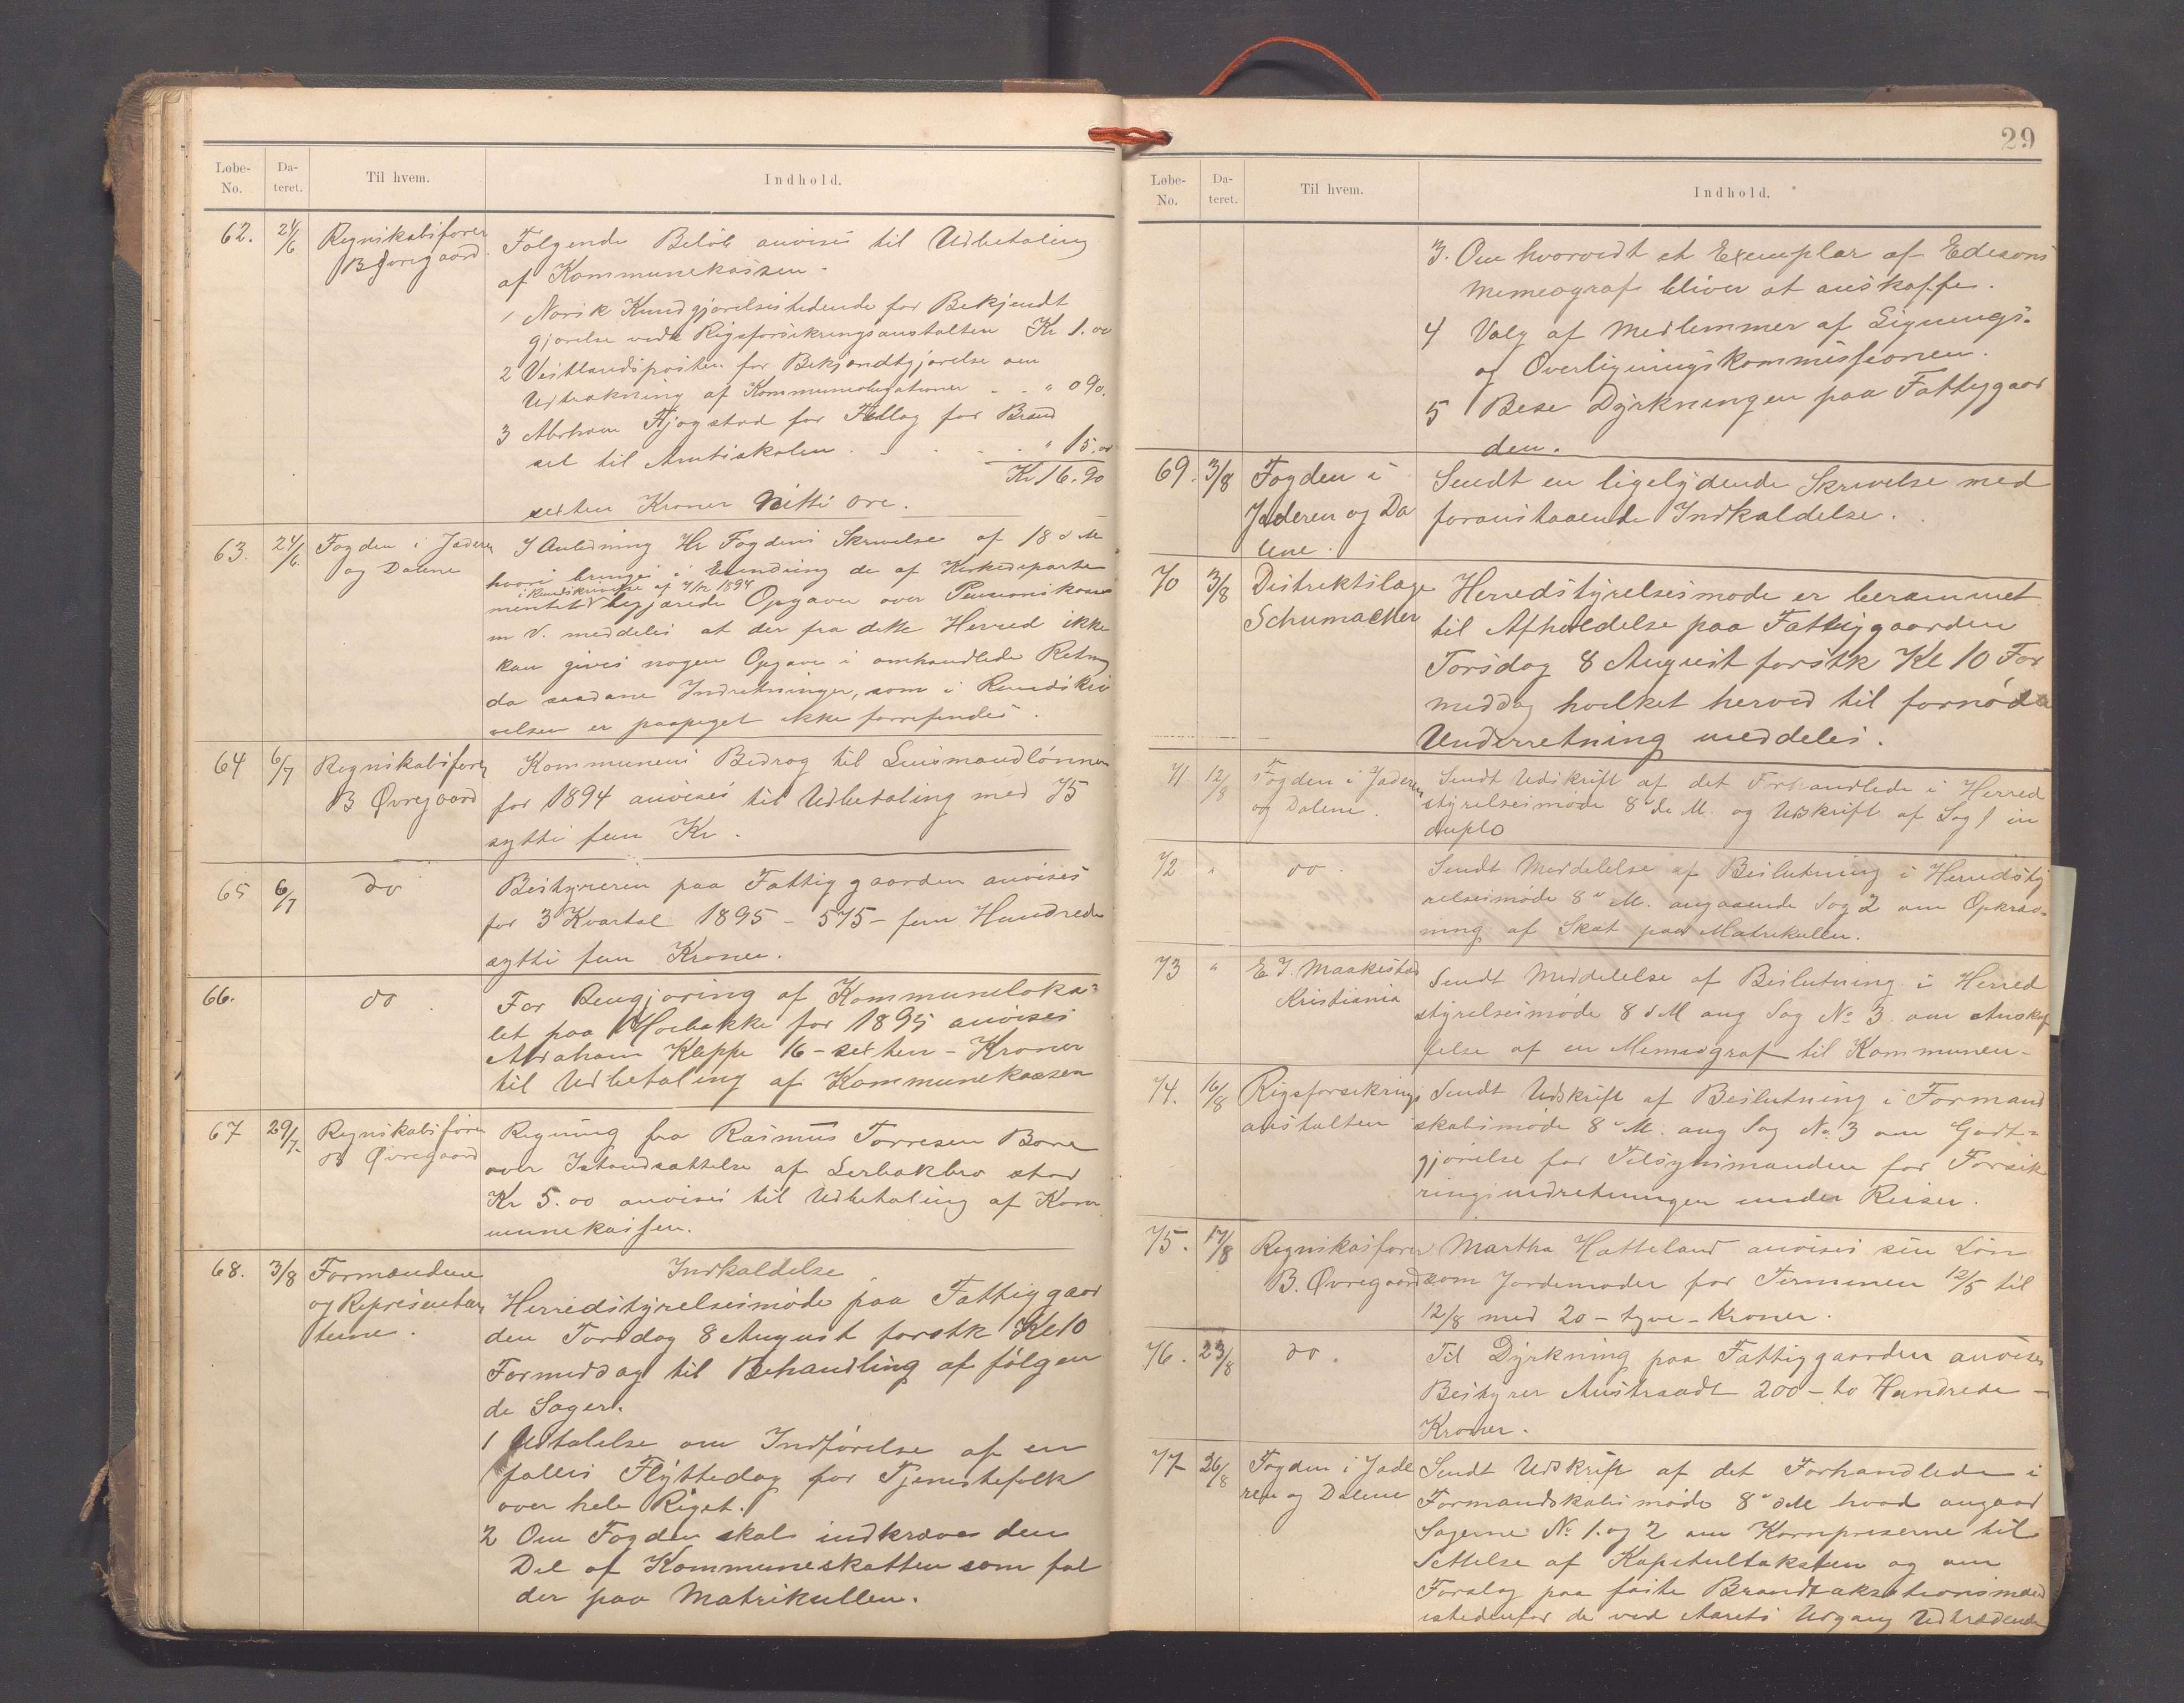 Løbe-No. Da-teret. Til hvem. Indhold.
62. 21/6 Regnskabsfører B Øvregaard.
Følgende Beløb anvises til Udbetaling
af Kommunekassen.
1 Norsk Kundgjørelsestidende for Bekjendt
gjørelse vedk Rigsforsikringsanstalten Kr 1.00
2 Vestlandsposten for Bekjendtgjørelse om
Udtrækning af Kommuneobligationer - - " 0 90.
3 Abraham Fjogstad for for Brænd
sel til Amtsskolen . - . - . " 15.00
Kr 16.90
sexten Kroner Nitti øre.
63. 24/6. Fogden i Jæderen og Dalene
I Anledning Hr Fogdens Skrivelse af 18 d M
hvori bringes i Erindring de af Kirkedeparte
i Rundskrivelse af 4/12 1894
mentet begjærede Opgaver over Pensionskasser
m V. meddeles at der fra dette Herred ikke
kan gives nogen Opgave i omhandlede Retning
da saadane Indretninger, som i Rundskri
velsen er paapeget ikke forrefindes.
64 6/7 Regnskabsfører B Øvregaard
Kommunens Bidrag til Lensmandlønnen
for 1894 anvises til Udbetaling med 75
sytti fem Kr.
65 6/7 do
Bestyreren paa Fattiggaarden anvises
for 3 Kvartal 1895 - 575 - fem Hundrede
sytti fem Kroner.
66. do
For Rengjøring af Kommuneloka-
let paa Moebakke for 1895 anvises
Abraham Kleppe 16 - sexten - Kroner
til Udbetaling af Kommunekassen
67 29/7. Regnskabsfører B Øvregaard
Regning fra Rasmus Torresen Bore
over Istandsættelse af stor
Kr 5.00 anvises til Udbetaling af Kom
munekassen.
68. 3/8 Formændene og Representan terne.
Indkaldelse
Herredstyrelsesmøde paa Fattiggaar
den Torsdag 8 August førstk Kl 10
Formiddag til Behandling af følgen
de Sager.
1 Udtalelse om Indførelse af en
fælles Flyttedag for Tjenestefolk
over hele Riget.
2 Om Fogden skal indkræve den
Del af Kommuneskatten som fal
der paa Matrikullen.
29
Løbe-No. Da-teret. Til hvem. Indhold.
3. Om hvorvidt et Exemplar af Edisons
Mimeograf bliver at anskaffe.
4 Valg af Medlemmer af Lignings-
og Overligningskommissionen.
5 Bese Dyrkningen paa Fattiggaar
den.
69. 3/8 Fogden i Jæderen og Da lene.
Sendt en ligelydende Skrivelse med
foranstaaende Indkaldelse.
70 3/8 Distriktslæge Schumacher
Herredstyrelsesmøde er berammet
til Afholdelse paa Fattiggaarden
Torsdag 8 August førstk Kl 10 For
middag hvilket herved til fornøden
Underretning meddeles.
71 12/8 Fogden i Jæderen og Dalene.
Sendt Udskrift af det Forhandlede i Herred
styrelsesmøde 8 de M. og Udskrift af Sag 1 in
duplo
72 " do.
Sendt Meddelelse af Beslutning i Herredsty
relsesmøde 8 d M. angaaende Sag 2 om Opkræv-
ning af Skat paa Matrikullen.
73 " E J. Maakestad Kristiania
Sendt Meddelelse af Beslutning i Herred
styrelsesmøde 8 d M ang Sag No 3 om Anskaf
felse af en Mimeograf til Kommunen-
74. 16/8 Rigsforsikrings anstalten
Sendt Udskrift af Beslutning i Formand
skabsmøde 8 d M. ang Sag No 3 om Godt-
gjørelse for Tilsynsmanden for Forsik
ringsindretningen under Reiser.
75. 17/8 Regnskasfører B. Øvregaard
Martha Hatteland anvises sin Løn
som Jordemoder for Terminen 12/5 til
12/8 med 20 - tyve - Kroner.
76. 23/8 do.
Til Dyrkning paa Fattiggaarden anvises
Bestyrer Austraadt 200 - to Hundrede -
Kroner.
77 26/8 Fogden i Jæde ren og Dalene
Sendt Udskrift af det Forhandlede i
Formandskabsmøde 8 d M hvad angaar
Sagerne No 1. og 2 om Kornpriserne til
Settelse af Kapitultaksten og om
Forslag paa faste Brandtaksationsmænd
istedenfor de ved Aarets Udgang Udtrædende